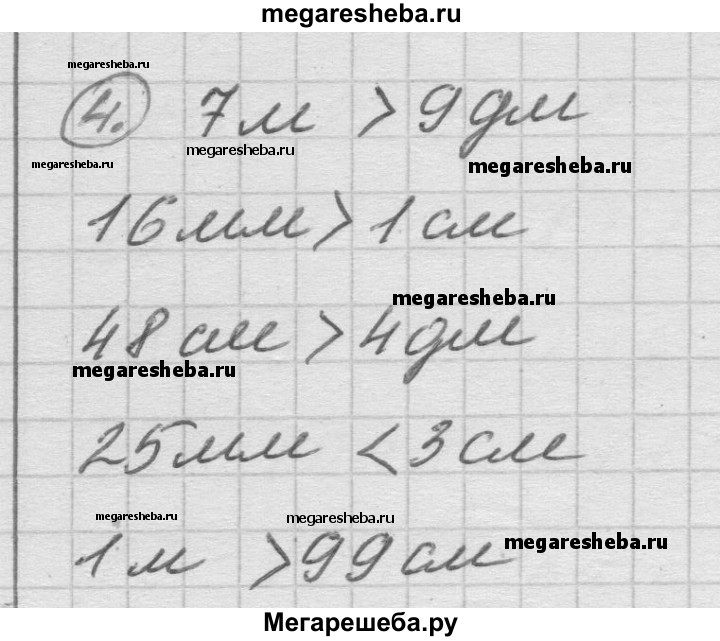 megaresheba.ru
megaresheba.ru
4. 7м > 9дм
megaresheba.ru
megaresheba.ru
megaresheba.ru
16мм > 1см
megaresheba.ru
48см > 4дм
megaresheba.ru
25мм < 3см
megaresheba.ru
megaresheba.ru
megaresheba.ru
1м > 99см
Мегарешеба.ру